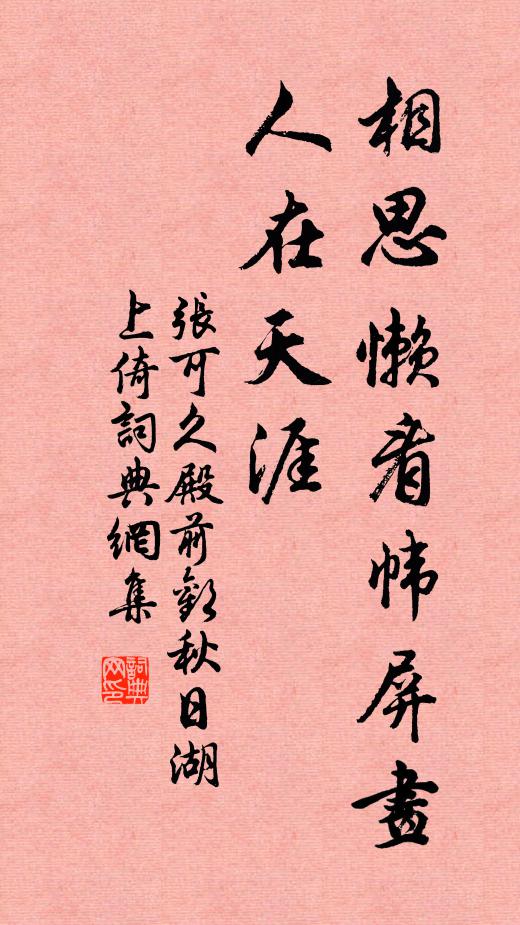 相思懶看幃屏畫
人在天涯
張可久殿前歡秋日湖
上倚詞典網集
詞典網印